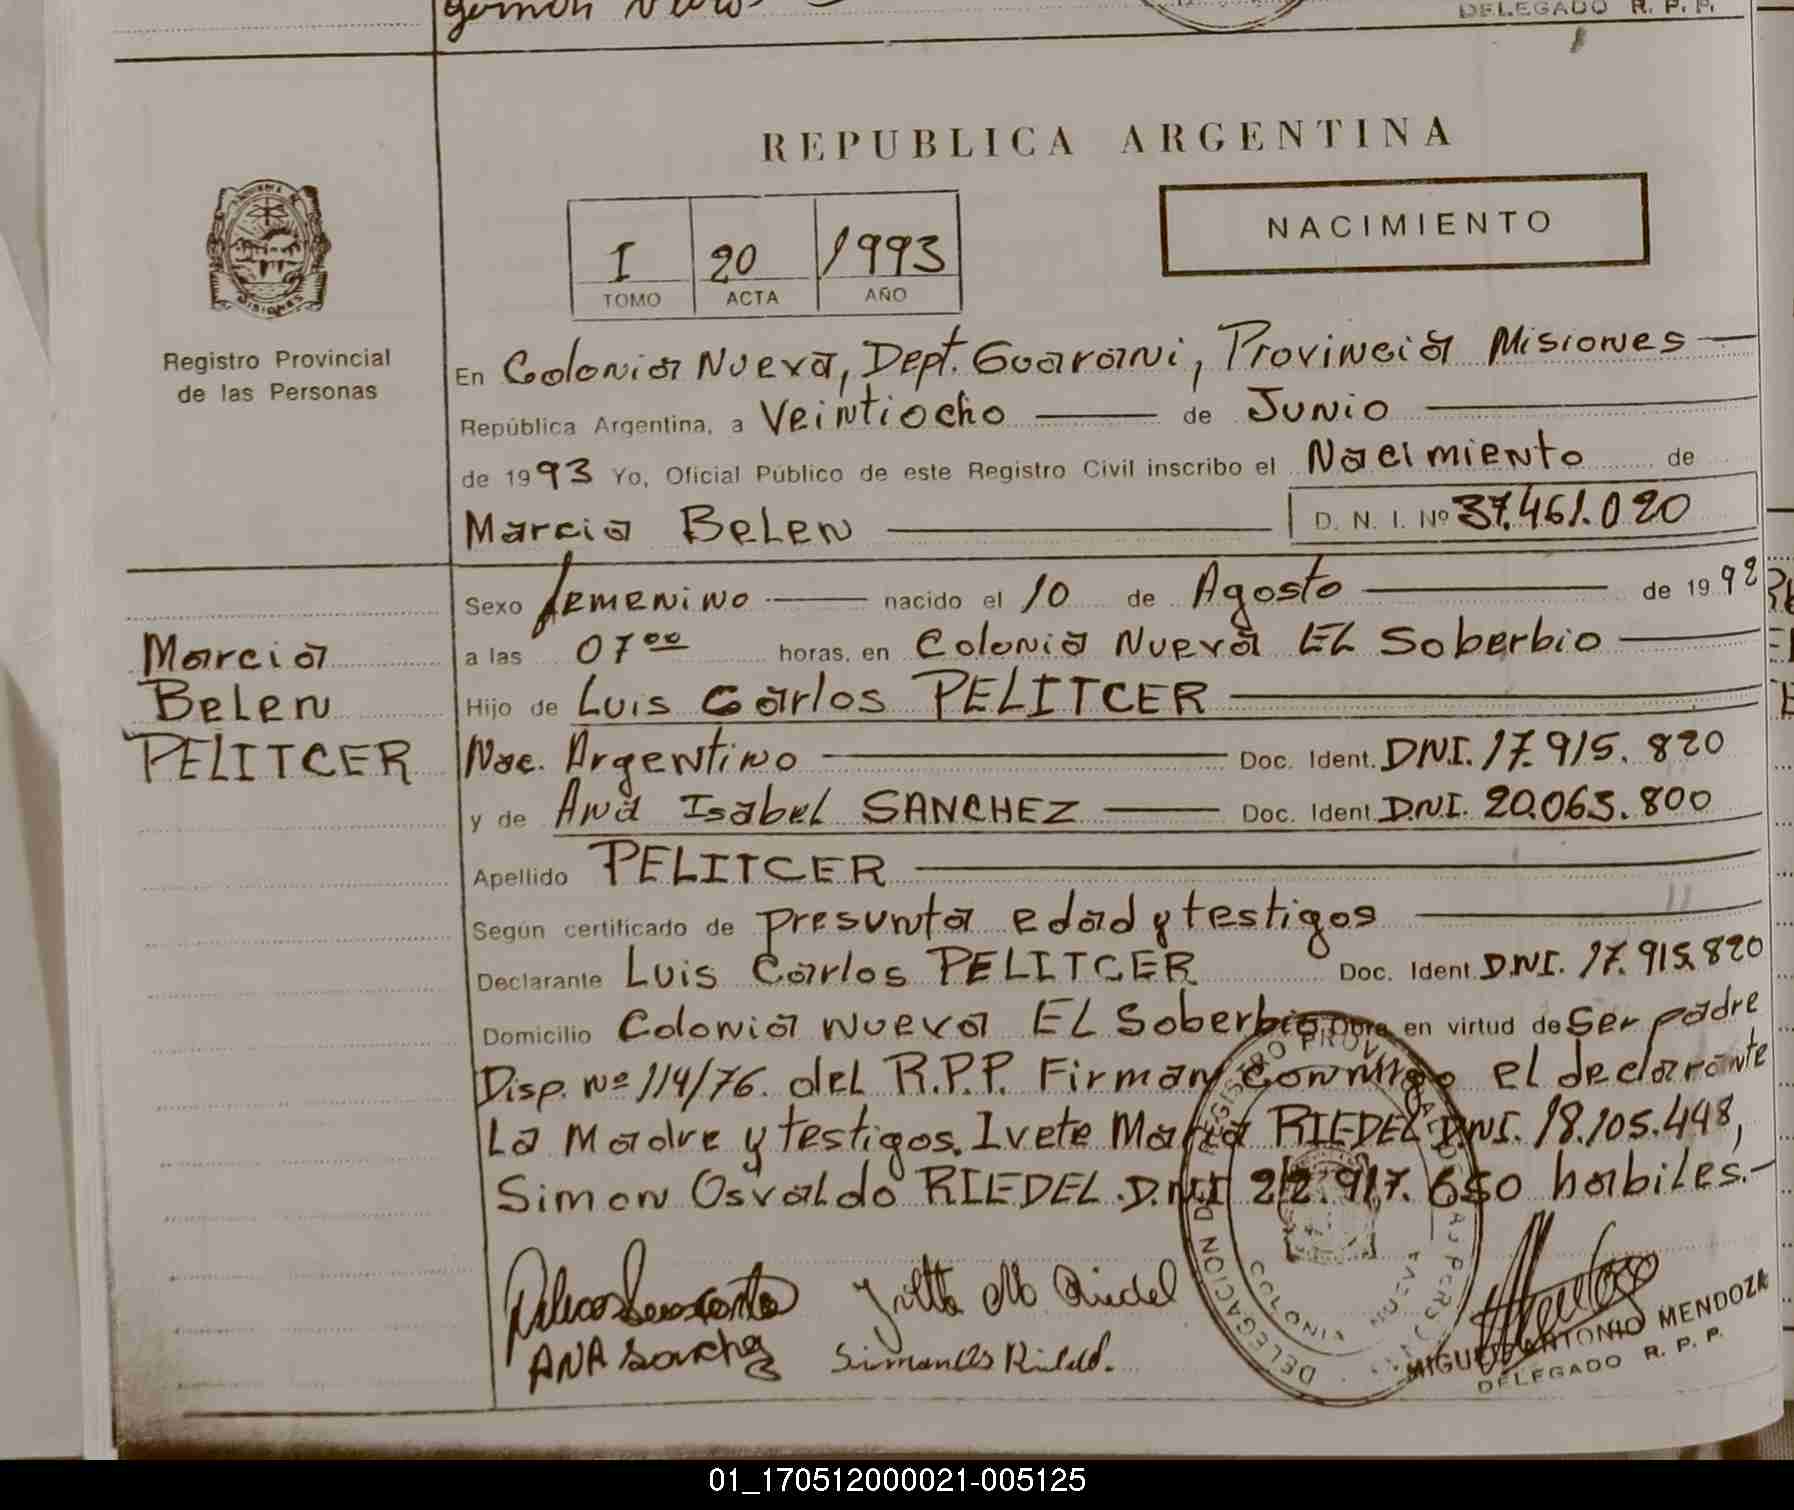 DELEGADO R. P. P.
REPUBLICA ARGENTINA
NACIMIENTO
I 20 1993
TOMO ACTA AÑO
MISIONES
Registro Provincial
de las Personas
En Colonia Nueva, Dept. Guarani, Provincia Misiones
República Argentina, a Veintiocho de Junio
de 1993 Yo, Oficial Público de este Registro Civil inscribo el Nacimiento de
Marcia Belen D. N. I. Nº 37.461.020
Sexo femenino nacido el 10 de Agosto de 1992
a las 07 00 horas, en Colonia Nueva EL Soberbio
Hijo de Luis Carlos PELITCER
Nac. Argentino Doc. Ident. DNI. 17.915.820
y de Ana Isabel SANCHEZ Doc. Ident. D.N.I. 20.063.800
Apellido PELITCER
Según certificado de presunta edad y testigos
Declarante Luis Carlos PELITCER Doc. Ident. DNI. 17.915.820
Domicilio Colonia Nueva EL Soberbio Obra en virtud de Ser padre
Disp. Nº 114/76. del R.P.P. Firman conmigo el declarante
La Madre y testigos. Ivete Maria RIEDEL DNI. 18.105.448,
Simon Osvaldo RIEDEL. D.N.I 22.917.650 habiles.-
Marcia
Belen
PELITCER
ANA Sanchez
Riedel
MIGUEL ANTONIO MENDOZA
DELEGADO R. P. P.
01_170512000021-005125